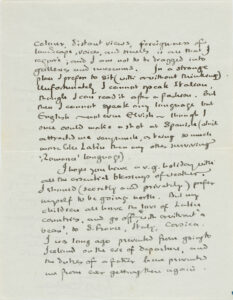 colour, distant views, foreignness of
landscape, voices, and smells is all that I
require, and I am not to be dragged into
galleries and museums. In a strange
place I prefer to sit (with or without drinking)
Unfortunately I cannot speak Italian,
though I can read it after a fashion. But
then I cannot speak any language but
English – not even Elvish – though I
once could make a shot at Spanish (which
attracts me very much, as being so much
more like Latin than any other surviving
'Romance' language)
I hope you have a v.g. holiday with
all the essential blessings of weather.
I should (secretly and privately) prefer
myself to be going north. But my
children all have the love of Latin
countries, and go off with or without a
'bean', to S. France, Italy, Corsica.
I was long ago prevented from going to
Iceland on the eve of departure, and
the duties of a father have prevented
me from ever getting there again.